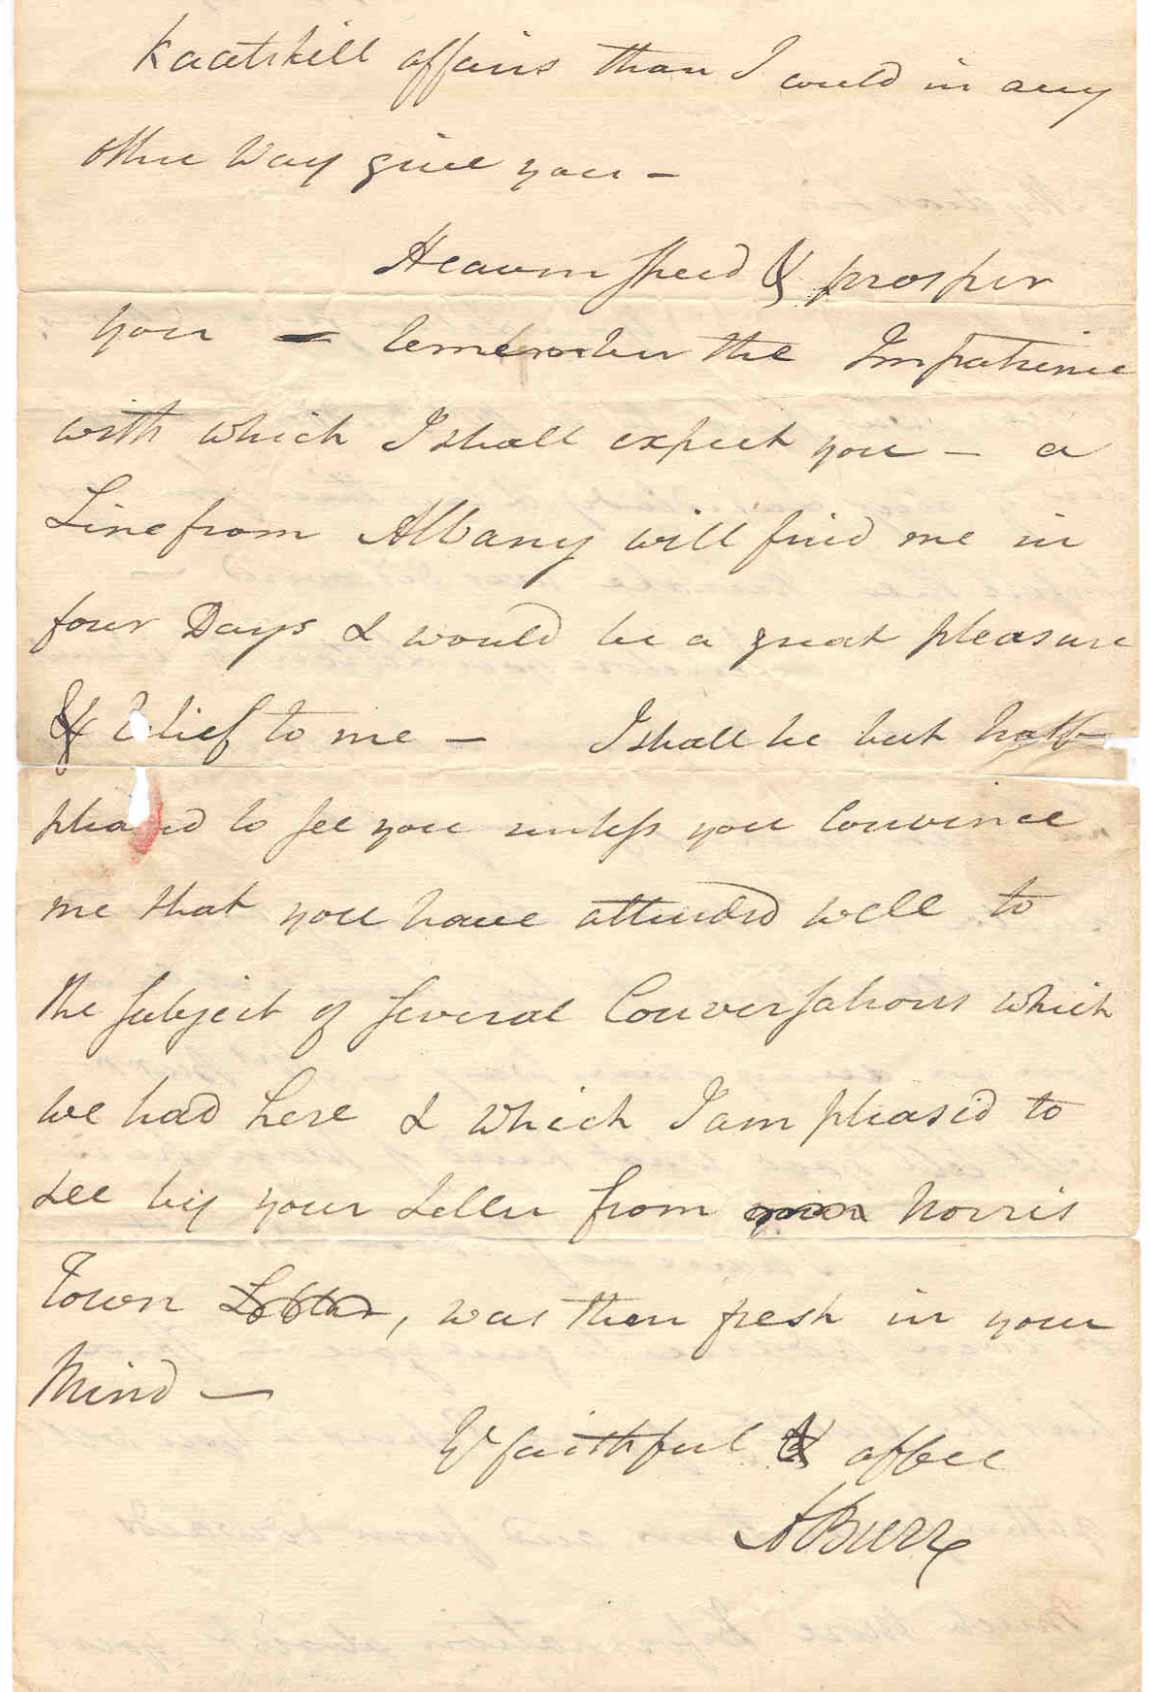 Kaatskill affairs than I could in any
other Way give you —
Heaven speed & prosper
you — Remember the Impatience
with which I shall expect you — a
Line from Albany will find me in
four Days & would be a great pleasure
& Relief to me — I shall be but half
pleased to see you unless you Convince
me that you have attended well to
the subject of several Conversations which
we had here & which I am pleas'd to
see by your Letter from Norris
Town, was then fresh in your
Mind —
Yr faithful & affec
A Burr